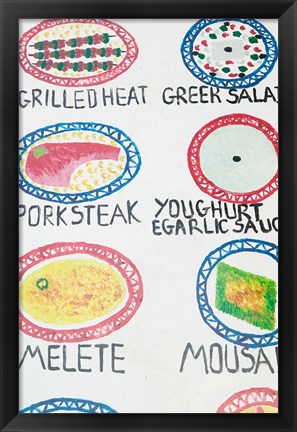 GRILLED HEAT GREEK SALAT
PORK STEAK YOUGHURT
EGARLIC SAUC
MELETE MOUSA